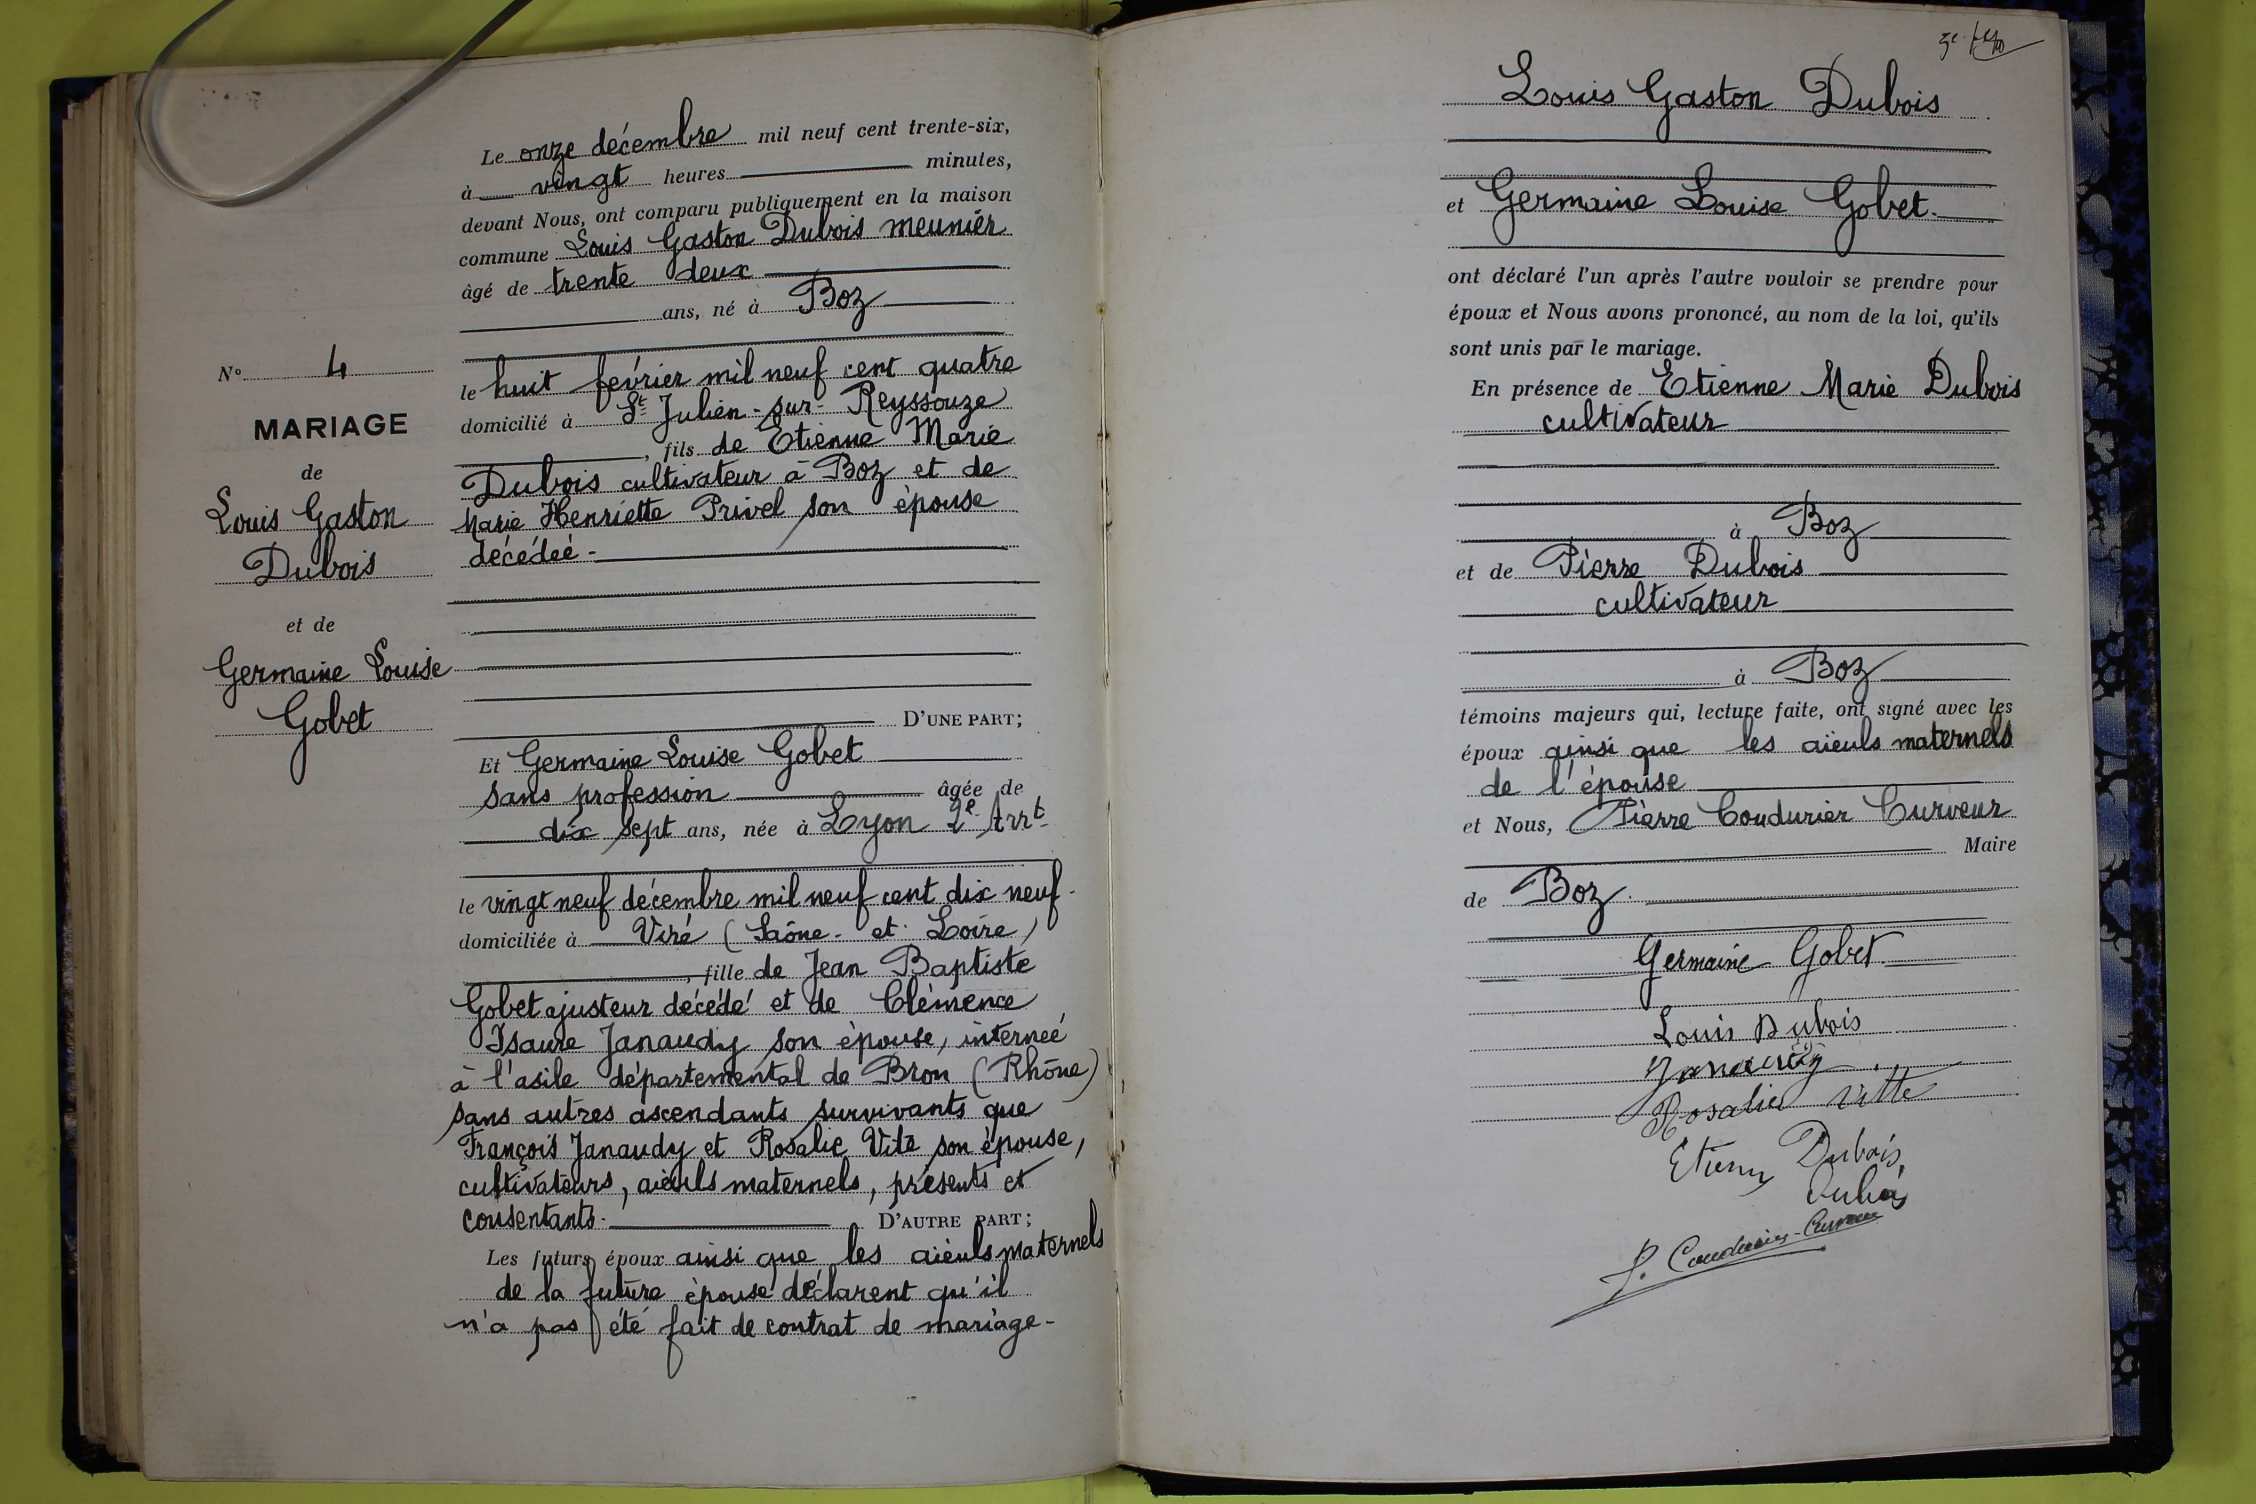 Le onze décembre mil neuf cent trente-six,
à vingt heures minutes,
devant Nous, ont comparu publiquement en la maison
commune Louis Gaston Dubois meunier
âgé de trente deux
ans, né à Boz
le huit février mil neuf cent quatre
domicilié à St Julien-sur-Reyssouze
, fils de Etienne Marie
Dubois cultivateur à Boz et de
Marie Henriette Privel son épouse
décédée-
D'UNE PART;
Et Germaine Louise Gobet
sans profession âgée de
dix sept ans, née à Lyon 2e Arrt
le vingt neuf décembre mil neuf cent dix neuf-
domiciliée à Viré (Saône-et-Loire)
, fille de Jean Baptiste
Gobet ajusteur décédé et de Clémence
Isaure Janaudy son épouse, internée
à l'asile départemental de Bron (Rhône)
sans autres ascendants survivants que
François Janaudy et Rosalie Vite son épouse,
cultivateurs, aïeuls maternels, présents et
consentants- D'AUTRE PART;
Les futurs époux ainsi que les aïeuls maternels
de la future épouse déclarent qu'il
n'a pas été fait de contrat de mariage-
No 4
MARIAGE
de
Louis Gaston
Dubois
et de
Germaine Louise
Gobet
Louis Gaston Dubois
et Germaine Louise Gobet.
ont déclaré l'un après l'autre vouloir se prendre pour
époux et Nous avons prononcé, au nom de la loi, qu'ils
sont unis par le mariage.
En présence de Etienne Marie Dubois
cultivateur
à Boz
et de Pierre Dubois
cultivateur
à Boz
témoins majeurs qui, lecture faite, ont signé avec les
époux ainsi que les aïeuls maternels
de l'épouse
et Nous, Pierre Coudurier Curveur
Maire
de Boz.
Germaine Gobet
Louis Dubois
Janaudy
Rosalie Vitte
Etienne Dubois,
Dubois
P. Coudurier-Curveur